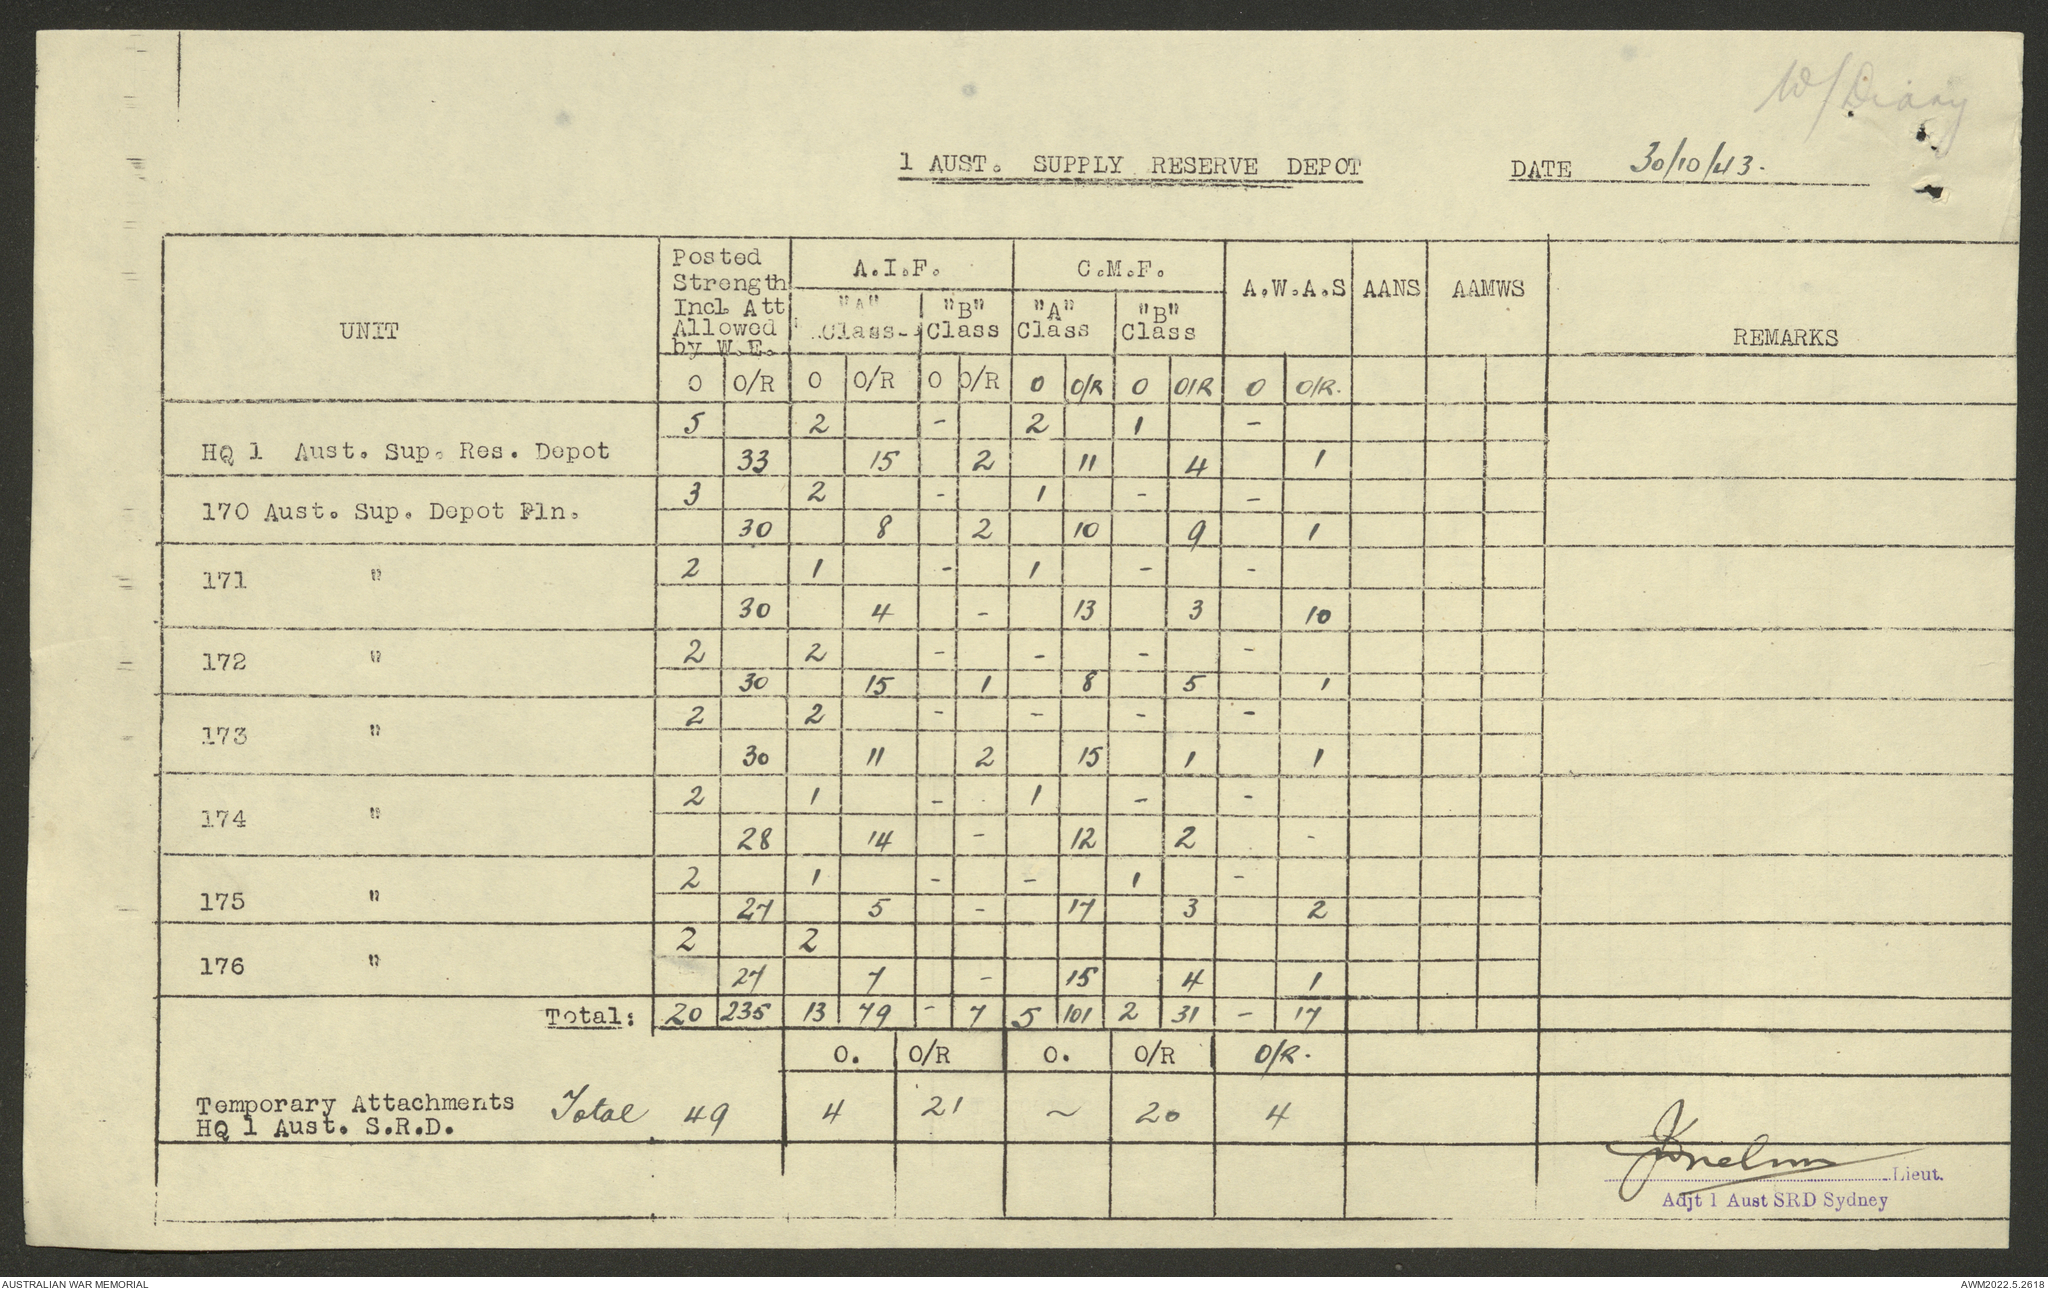 W/Diary
1 AUST. SUPPLY RESERVE DEPOT DATE 30/10/43.
UNIT Posted Strength Incl. Att Allowed by W.E. A.I.F. C.M.F. A.W.A.S AANS AAMWS REMARKS
"A" Class "B" Class "A" Class "B" Class
O O/R O O/R O O/R O O/R O O/R O O/R.
5 2 - 2 1 -
HQ 1 Aust. Sup. Res. Depot 33 15 2 11 4 1
3 2 - 1 - -
170 Aust. Sup. Depot Pln. 30 8 2 10 9 1
2 1 - 1 - -
171 " 30 4 - 13 3 10
2 2 - - - -
172 " 30 15 1 8 5 1
2 2 - - - -
173 " 30 11 2 15 1 1
2 1 - 1 - -
174 " 28 14 - 12 2 -
2 1 - - 1 -
175 " 27 5 - 17 3 2
2 2
176 " 27 7 - 15 4 1
Total: 20 235 13 79 - 7 5 101 2 31 - 17
O. O/R O. O/R O/R.
Temporary Attachments Total 49 4 21 ~ 20 4
HQ 1 Aust. S.R.D.
Lieut.
Adjt 1 Aust SRD Sydney
AUSTRALIAN WAR MEMORIAL AWM2022.5.2618